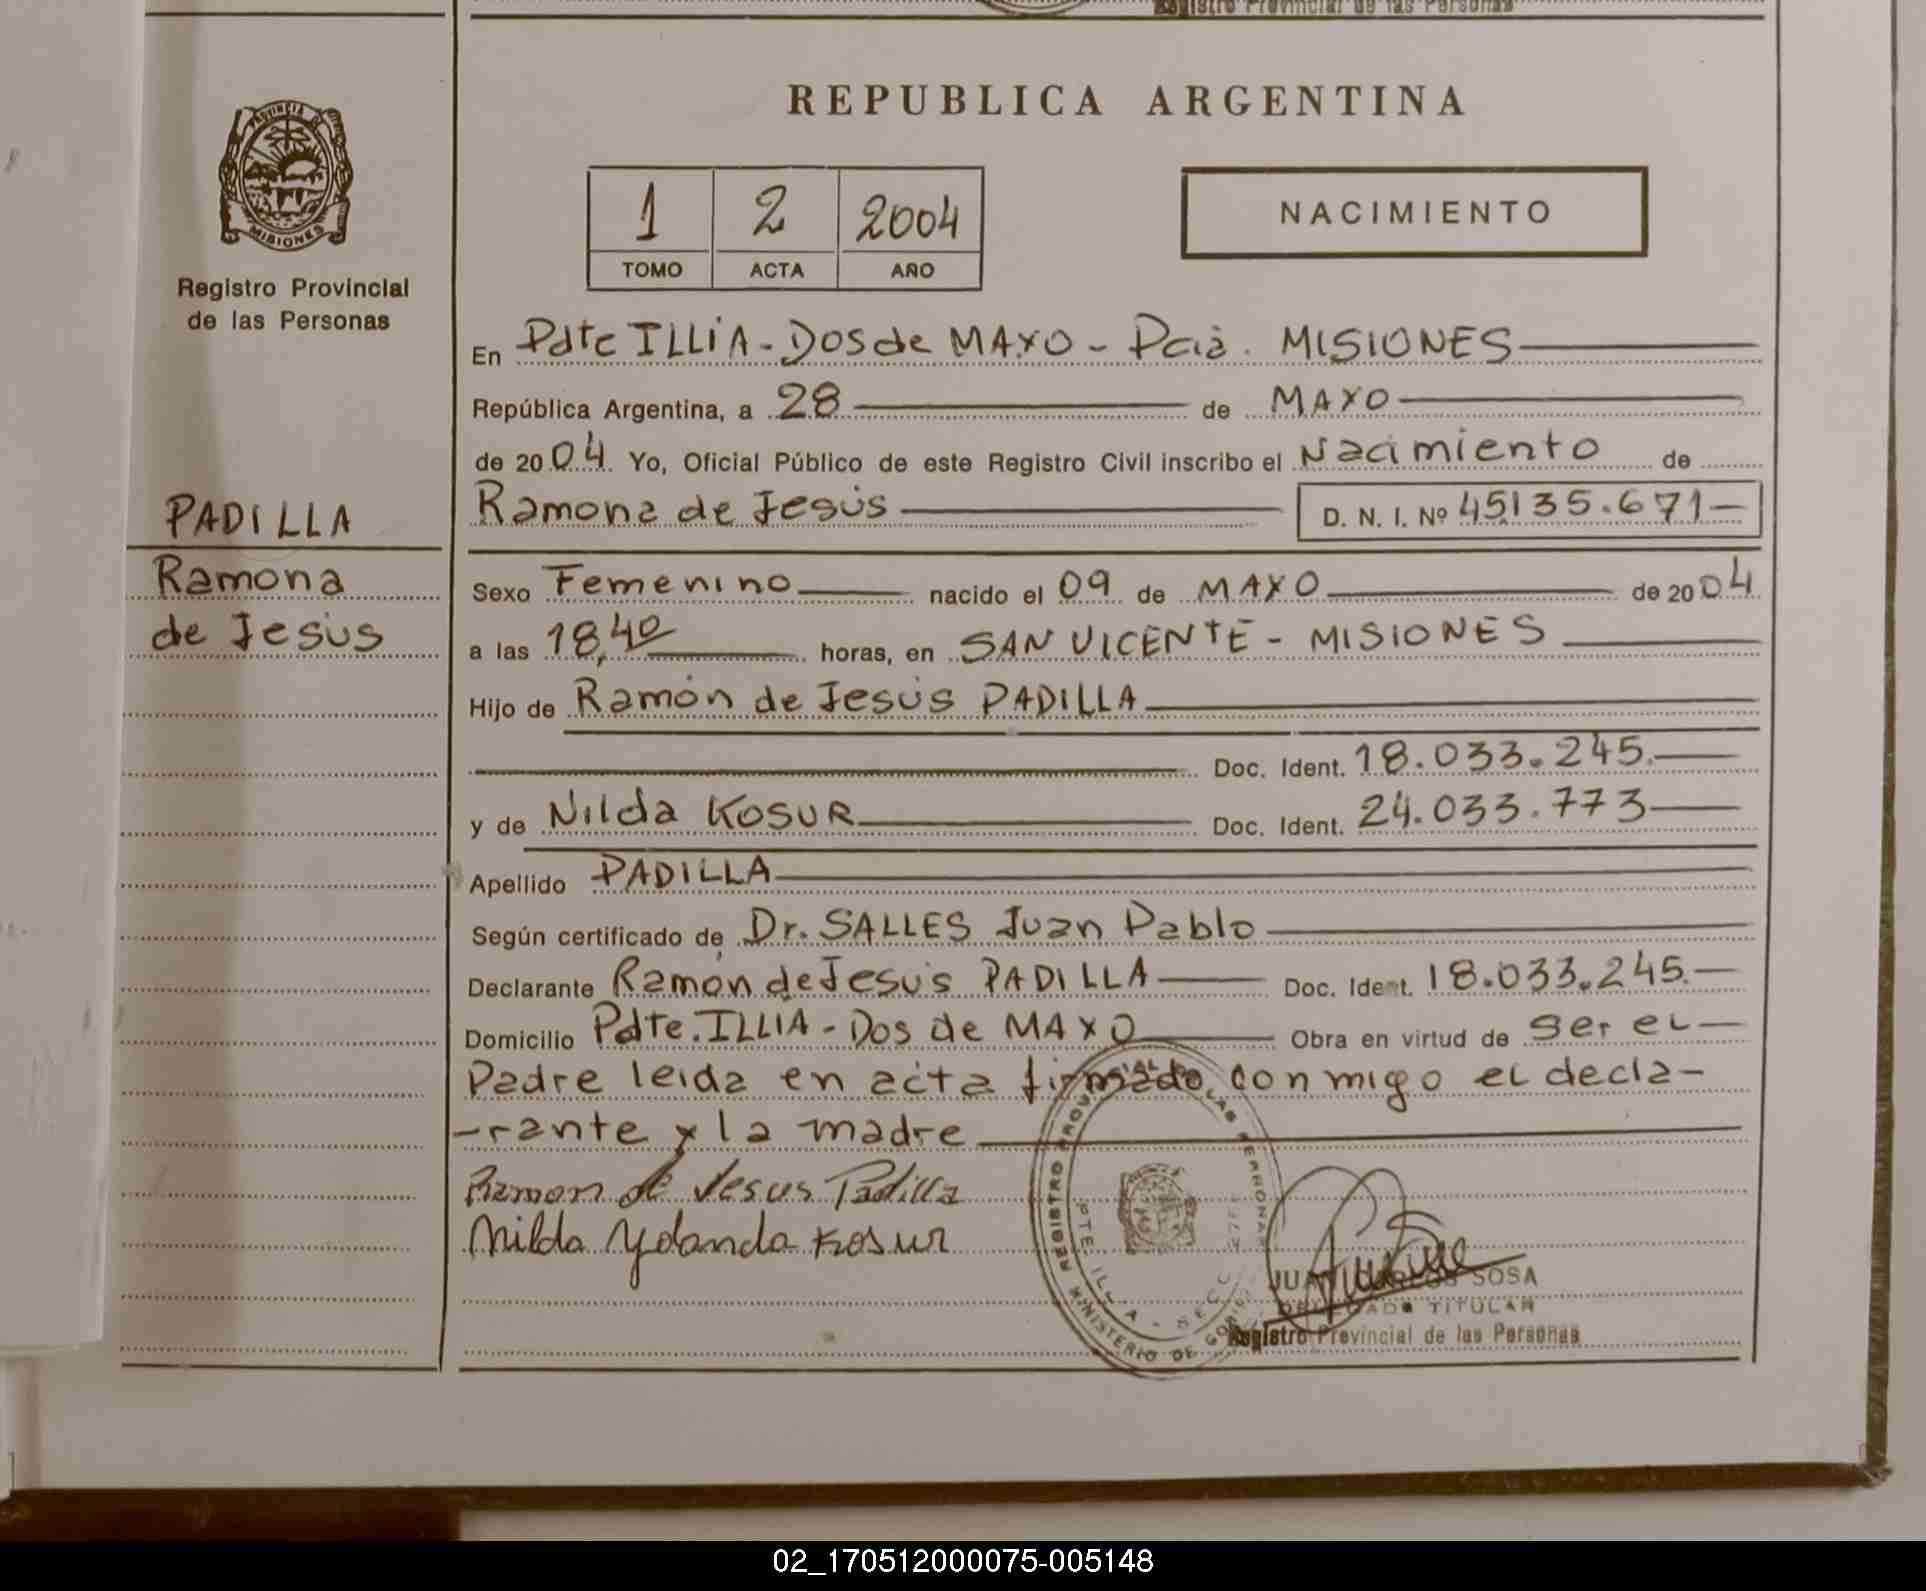 Registro Provincial de las Personas
REPUBLICA ARGENTINA
PROVINCIA DE
MISIONES
Registro Provincial
de las Personas
1 2 2004
TOMO ACTA AÑO
NACIMIENTO
En Pdte ILLIA - Dos de MAYO - Pcia. MISIONES
República Argentina, a 28 de MAYO
de 2004 Yo, Oficial Público de este Registro Civil inscribo el Nacimiento de
Ramona de Jesús D. N. I. Nº 45135.671-
PADILLA
Ramona
de Jesús
Sexo Femenino nacido el 09 de MAYO de 2004
a las 18,40 horas, en SAN VICENTE - MISIONES
Hijo de Ramón de Jesús PADILLA
Doc. Ident. 18.033.245.
y de Nilda KOSUR Doc. Ident. 24.033.773
Apellido PADILLA
Según certificado de Dr. SALLES Juan Pablo
Declarante Ramón de Jesús PADILLA Doc. Ident. 18.033.245.
Domicilio Pdte. ILLIA - Dos de MAYO Obra en virtud de ser el
Padre leida en acta firmado conmigo el decla-
-rante y la madre
Ramon de Jesus Padilla
Nilda Yolanda Kosur
REGISTRO PROVINCIAL DE LAS PERSONAS
MINISTERIO DE
PTE. ILLIA - SECC
JUAN CARLOS SOSA
DELEGADO TITULAR
Registro Provincial de las Personas
02_170512000075-005148